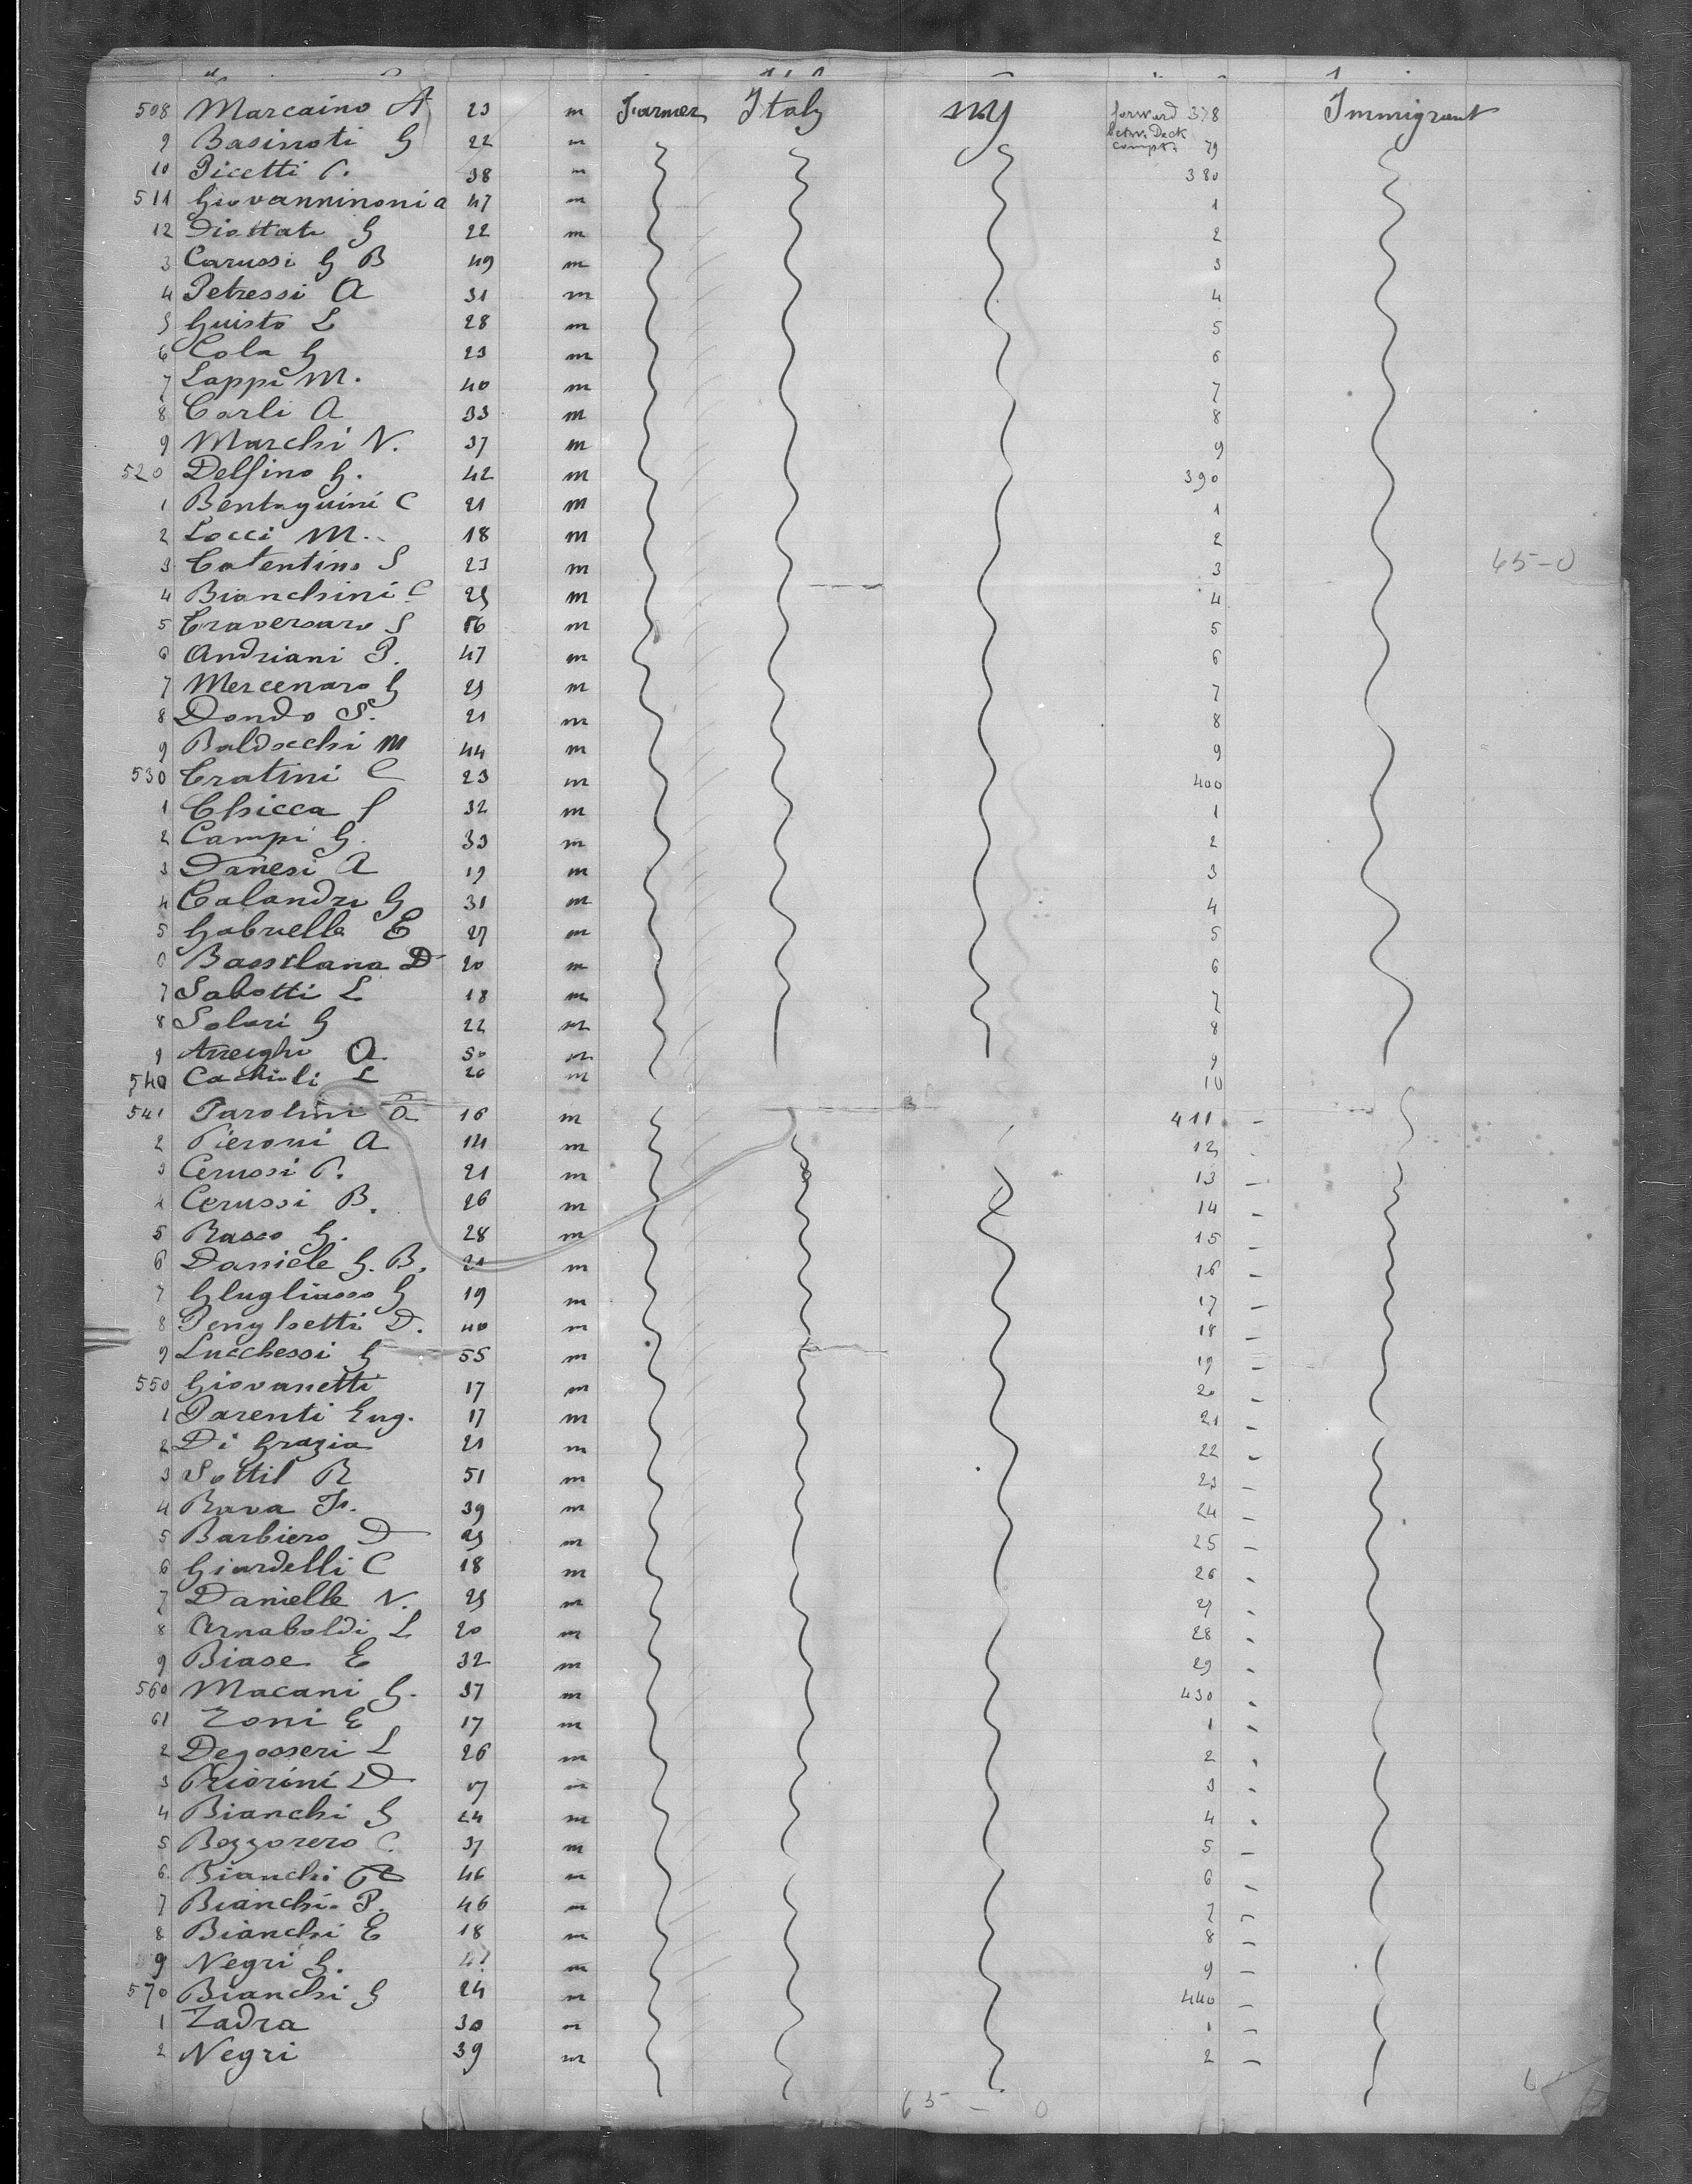 508 Marcaino A 23 m Farmer Italy NY forward 378 Immigrant
9 Basinoti G 22 m Betw. Deck compt. 79
10 Picetti P. 38 m 380
511 Giovanninoni a 47 m 1
12 Diostati G 22 m 2
3 Carussi G B 49 m 3
4 Petressi A 31 m 4
5 Guisto L 28 m 5
6 Cola G 23 m 6
7 Lappi M. 40 m 7
8 Carli A 33 m 8
9 Marchi N. 37 m 9
520 Delfino G. 42 m 390
1 Bentaguini C 21 m 1
2 Locci M. 18 m 2
3 Catentino S 23 m 3 65-0
4 Bianchini C 25 m 4
5 Traversaro S 16 m 5
6 Andriani P. 47 m 6
7 Mercenaro G 25 m 7
8 Dondo S. 21 m 8
9 Baldocchi M 44 m 9
530 Tratini C 23 m 400
1 Chicca S 32 m 1
2 Campi G. 33 m 2
3 Danesi A 19 m 3
4 Calandri G 31 m 4
5 Gabrielle E 27 m 5
6 D 20 m 6
7 Sabotti L 18 m 7
8 Solari G 22 m 8
9 A. 50 m 9
540 L 20 m 10
541 Parolini A 16 m 411 -
2 Pieroni A 14 m 12
3 Cerussi P. 21 m 13 -
4 Cerussi B. 26 m 14 -
5 Rasso G. 28 m 15 -
6 Daniele G. B. 21 m 16 -
7 Glugliasso G 19 m 17 -
8 D. 40 m 18 -
9 Lucchessi G 55 m 19 -
550 Giovanetti 17 m 20 -
1 Parenti Eug. 17 m 21 -
2 Di Grazia 21 m 22 -
3 Sottil R 51 m 23 -
4 Rava Fr. 39 m 24 -
5 Barbiero D 25 m 25 -
6 Giardelli C 18 m 26 -
7 Danielle N. 25 m 27 -
8 Arnaboldi L 20 m 28 -
9 Biase E 32 m 29 -
560 Macani G. 37 m 430 -
61 Zoni E 17 m 1 -
2 Degosseri L 26 m 2 -
3 Priorini D 17 m 3 -
4 Bianchi G 24 m 4 -
5 Bozzorero C. 37 m 5 -
6 Bianchi 46 m 6 -
7 Bianchi P. 46 m 7 -
8 Bianchi E 18 m 8 -
9 Negri G. m 9 -
570 Bianchi G 24 m 440 -
1 Zadra 30 m 1 -
2 Negri 39 m 2 -
65 - 0